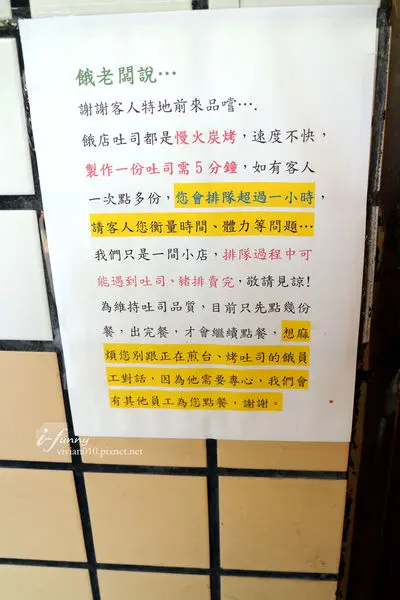 餓老闆說…
謝謝客人特地前來品嚐….
餓店吐司都是慢火炭烤，速度不快，
製作一份吐司需5分鐘，如有客人
一次點多份，您會排隊超過一小時，
請客人您衡量時間、體力等問題…
我們只是一間小店，排隊過程中可
能遇到吐司、豬排賣完，敬請見諒!
為維持吐司品質，目前只先點幾份
餐，出完餐，才會繼續點餐，想麻
煩您別跟正在煎台、烤吐司的餓員
工對話，因為他需要專心，我們會
有其他員工為您點餐，謝謝。
i-funny
vivian010.pixnet.net